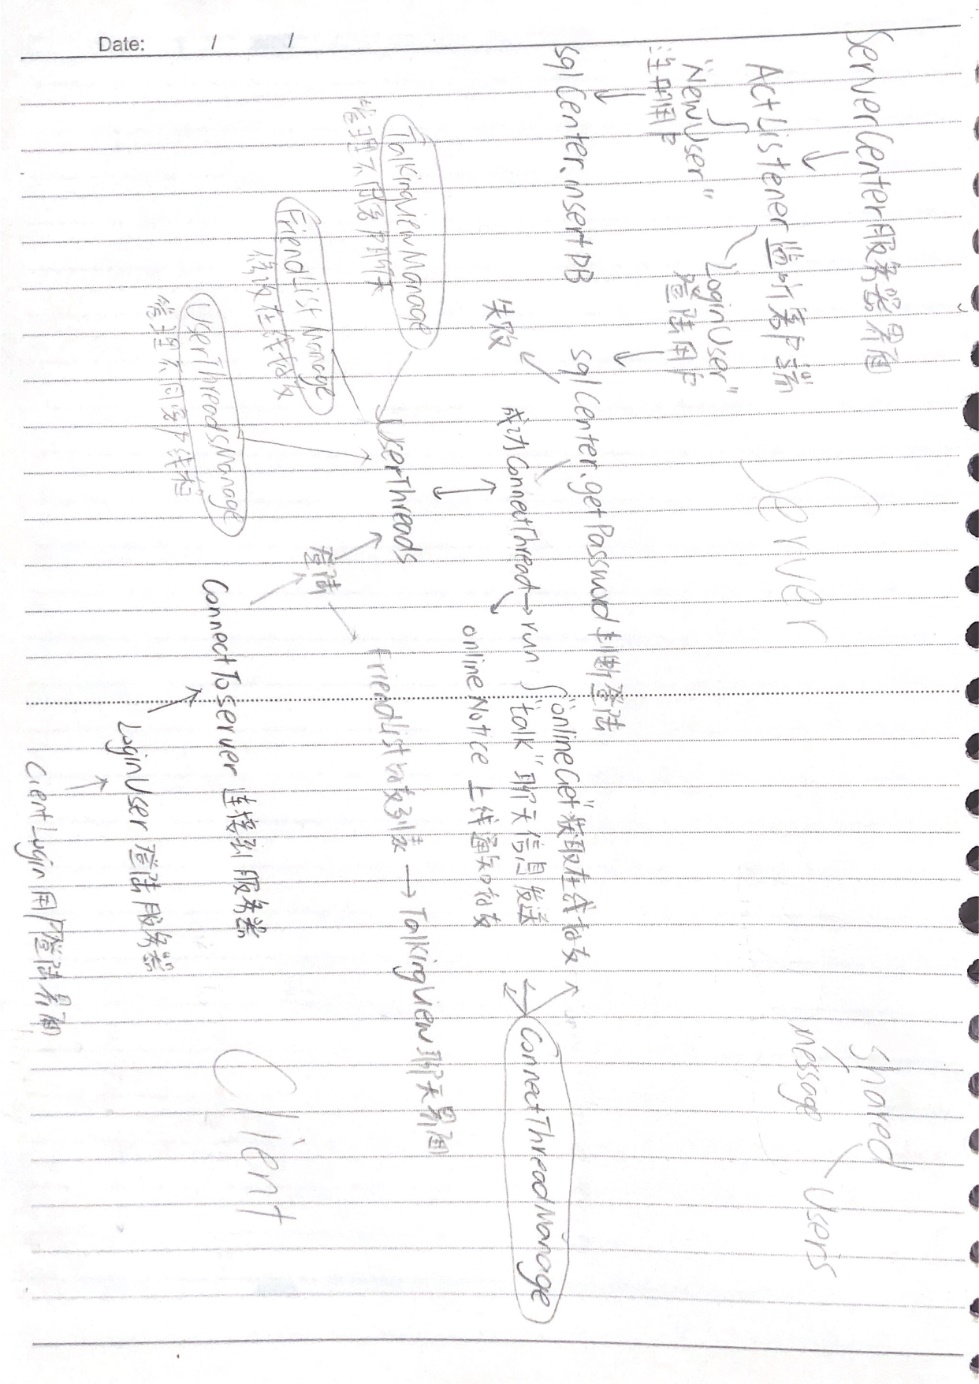 Date: / /
ServerCenter服务器界面
ActListener监听客户端
"NewUser"
注册用户
"LoginUser"
登陆用户
sqlCenter.insertDB
sqlCenter.getPassword判断登陆
失败
成功ConnectThread→run
"onlineGet"获取在线好友
"talk"聊天信息发送
onlineNotice 上线通知好友
ConnectThreadManage
Server
Shared
message
Users
UserThreads
TalkingviewManage
管理不同客户聊天
FriendListManage
修改在线好友
UserThreadsManage
管理不同客户线程
登陆
FriendList好友列表→Talkingview聊天界面
ConnectToserver连接到服务器
LoginUser登陆服务器
CientLogin用户登陆界面
Client